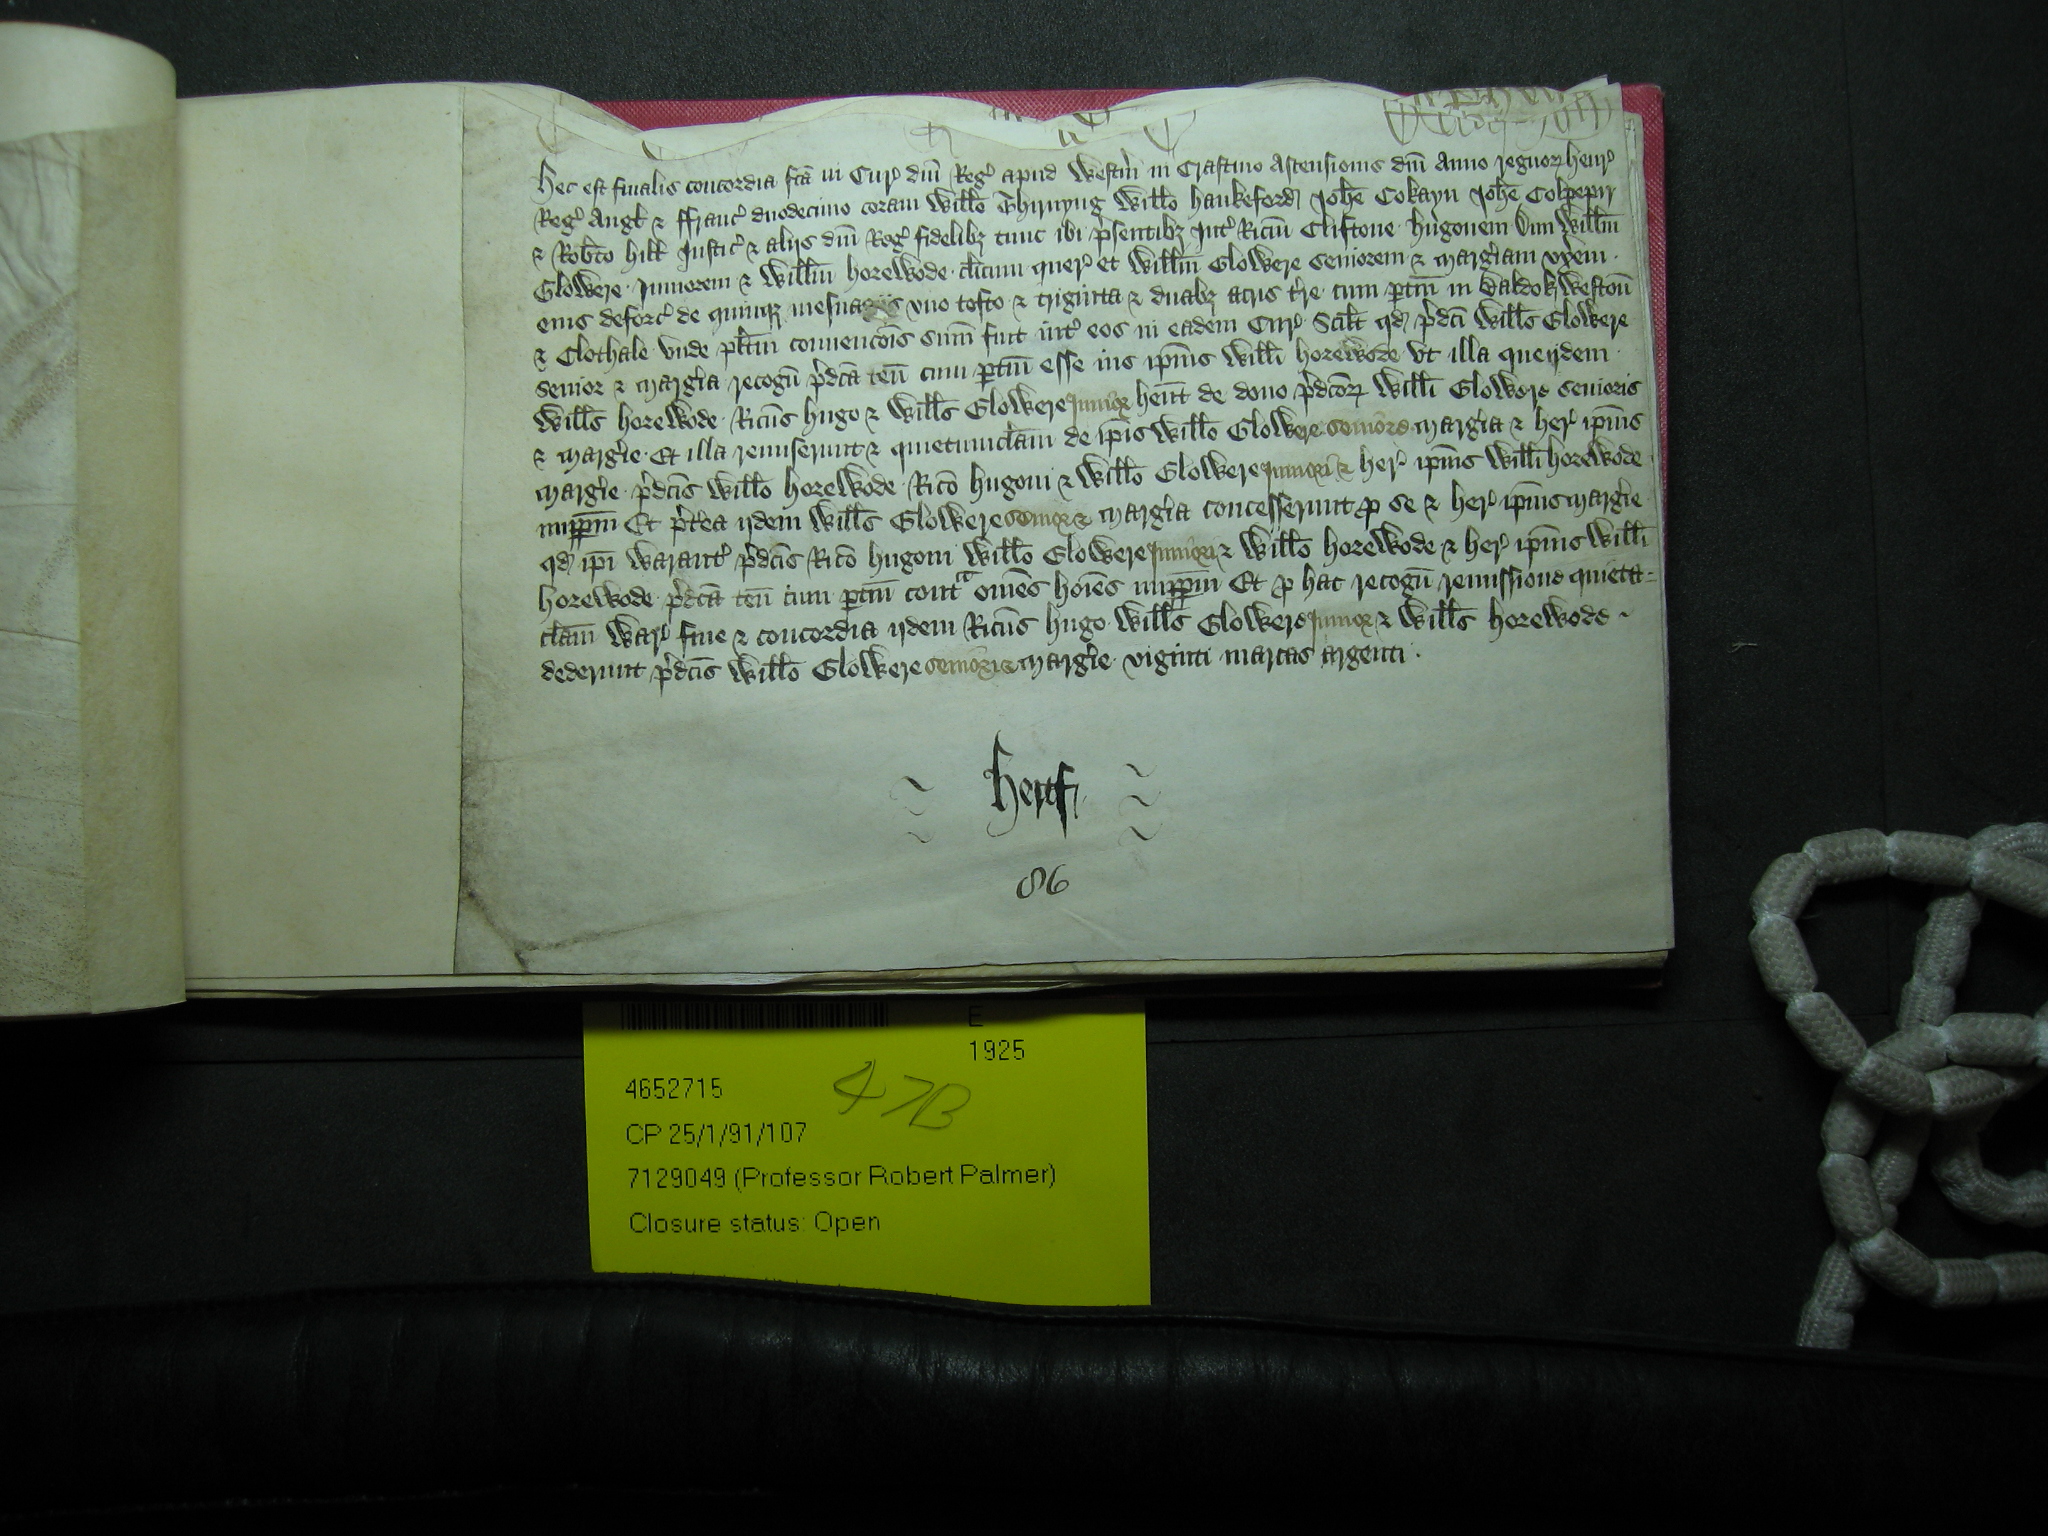 Hec est finalis concordia fcā in Cur' dnī Reg' apud Westm̄ in Crastino Ascensionis dnī Anno regnoꝝ henr'
Reg' Angł & ffranc' duodecimo coram Wiłło Thirnyng Wiłło hankeford Joħe Cokayn Joħe Colpepir
& Roƀto Hiłł Justic' & alijs dnī Reg' fidelibȝ tunc ibi p'sentibȝ Int' Ricm̄ Cliftone hugonem Wiłłm
Glowere Juniorem & Wiłłm horewode cłicum quer' et Wiłłm Glowere seniorem & Marg'iam vxem
eius deforc' de quinqȝ mesuagijs vno tofto & triginta & duabȝ acris t're cum ptin̄ in Baldok Westoun̄
& Clothale vnde płitm̄ convencōis sum̄ fuit int' eos in eadem Cur' Sciłt qd p'dc̄i Wiłłs Glowere
senior & Marg'ia recogn̄ p'dc̄a ten̄ cum ptin̄ esse ius ip̄ius Wiłłi horewode vt illa que ijdem
Wiłłs horewode Ric̄us hugo & Wiłłs Glowere Junior hen̄t de dono p'dc̄oꝝ Wiłłi Glowere senioris
& Marg'ie Et illa remiserunt & quietumclam̄ de ip̄is Wiłło Glowere seniore Marg'ia & her' ip̄ius
Marg'ie p'dc̄is Wiłło horewode Ric̄o hugoni & Wiłło Glowere Juniori & her' ip̄ius Wiłłi horewode
imppm̄ Et p't'ea ijdem Wiłłs Glowere senior & Marg'ia concesserunt p se & her' ip̄ius Marg'ie
qd ip̄i Warant' p'dc̄is Ric̄o hugoni Wiłło Glowere Juniori & Wiłło horewode & her' ip̄ius Wiłłi
horewode p'dc̄a ten̄ cum ptin̄ contᵃ om̄es hoīes imppm̄ Et p hac recogn̄ remissione quieta=
clam̄ War' fine & concordia ijdem Ric̄us hugo Wiłłs Glowere Junior & Wiłłs horewode
dederunt p'dc̄is Wiłło Glowere seniori & Marg'ie viginti marcas argenti.
hertf
86
E
1925
4652715
47B
CP 25/1/91/107
7129049 (Professor Robert Palmer)
Closure status: Open